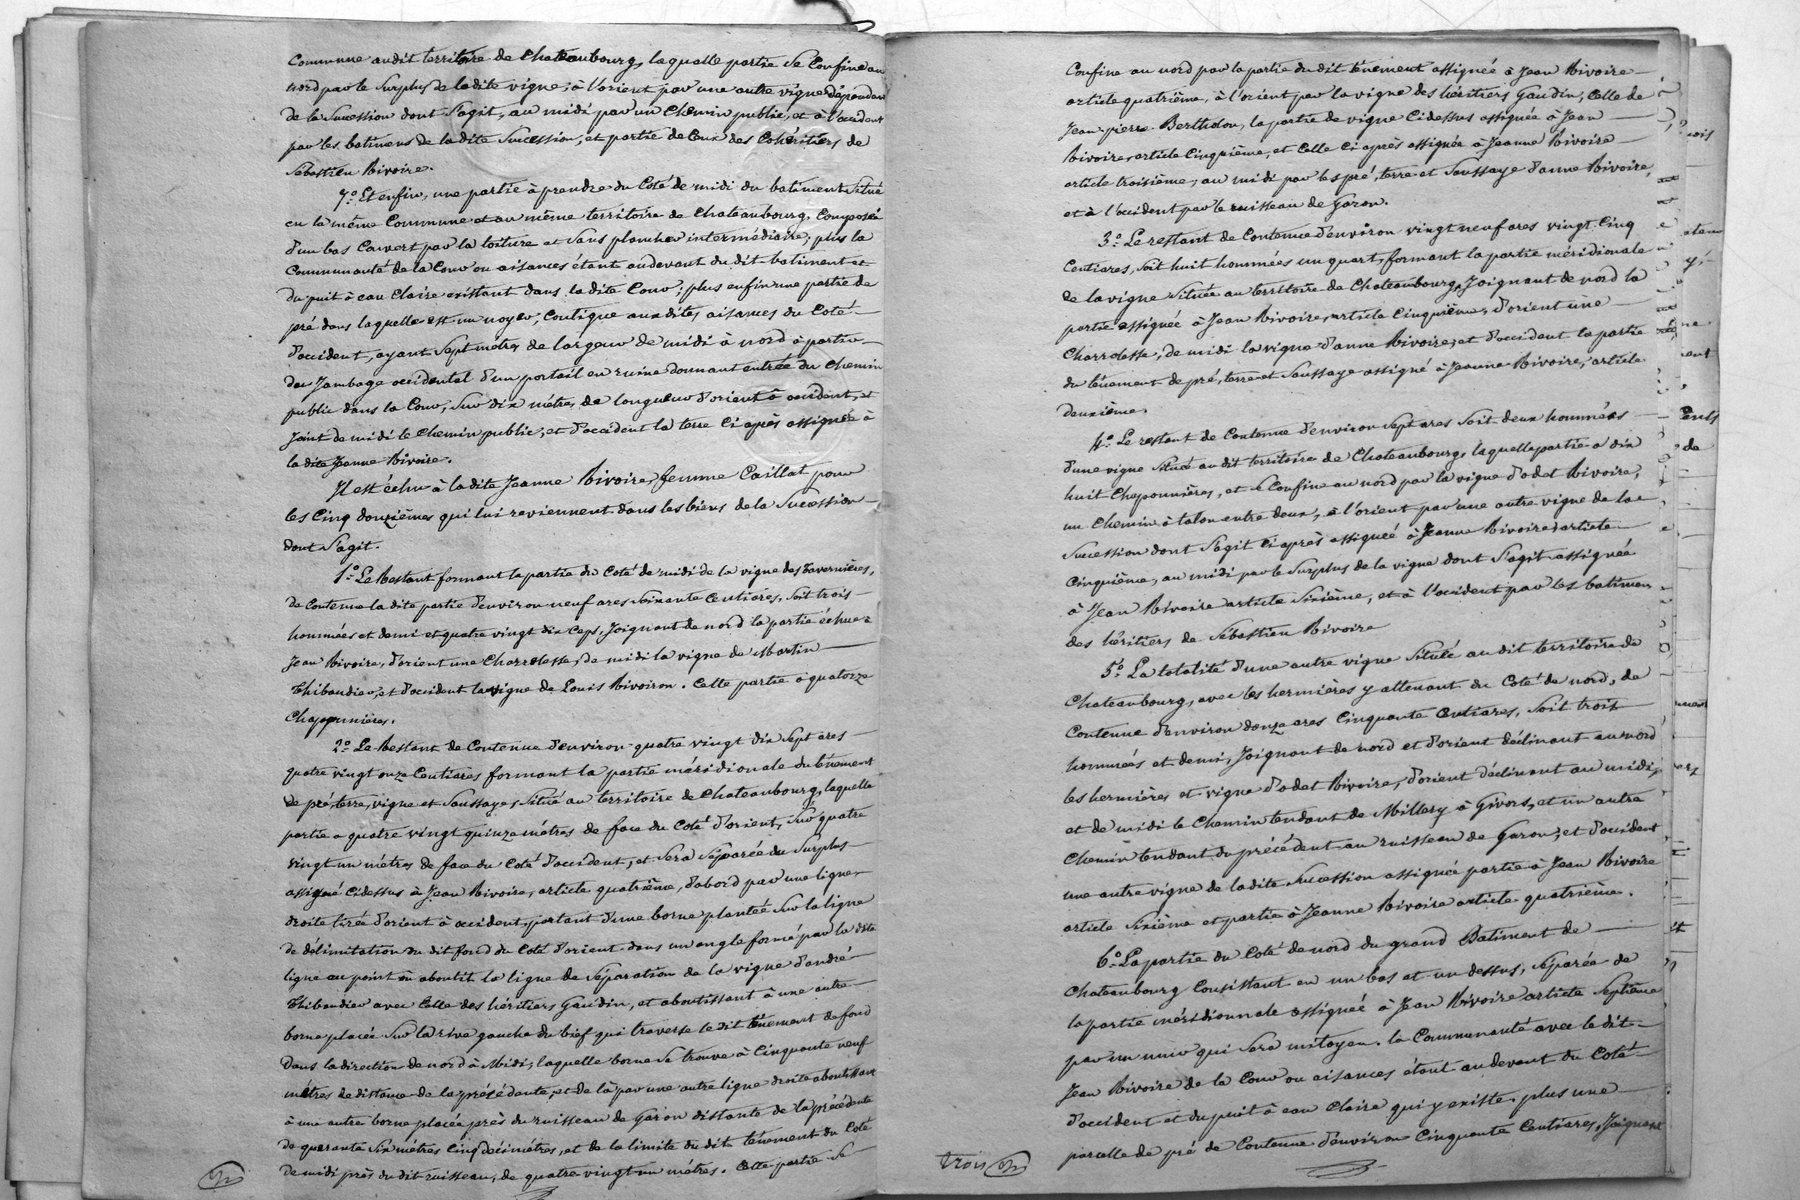 Commune audit territoire de Chateaubourg, laquelle partie se Confine au
nord par le Surplus de la dite vigne; à l'orient par une autre vigne dépendant
de la Succession dont S'agit, au midi par un Chemin public, et à l'occident
par les batimens de la dite Succession, et partie de Ceux des Cohéritiers de
Sébastien Rivoire.
7° Et enfin, une partie à prendre du Coté de midi du batiment Situé
en la même Commune et au même territoire de Chateaubourg, Composée
d'un bas Couvert par la toiture et Sans plancher intermédiaire; plus la
Communauté de la Cour ou aisances étant audevant du dit batiment et
du puit à eau Claire existant dans la dite Cour; plus enfin une partie de
pré dans laquelle est un noyer, Contigue aux dites aisances du Coté
d'occident, ayant Sept métres de largeur de midi à nord à partir
du Jambage occidental d'un portail en ruine donnant entrée du Chemin
public dans la Cour, Sur dix métres de longueur d'orient à occident, et
Joint de midi le Chemin public, et d'occident la terre Ci après assignée à
la dite Jeanne Rivoire.
Il est échu à la dite Jeanne Rivoire, femme Caillat pour
les Cinq douzièmes qui lui reviennent dans les biens de la Succession
dont S'agit.
1° Le Restant formant la partie du Coté de midi de la vigne des Tavernières,
de Contenue la dite partie d'environ neuf ares Soixante Centiares, Soit trois
hommées et demi et quatre vingt dix Ceps, Joignant de nord la partie échue à
Jean Rivoire, d'orient une Charrolesse, de midi la vigne de Martin
Thibaudier, et d'occident la vigne de Louis Rivoiron. Cette partie a quatorze
Chaponnières.
2° Le Restant de Contenue d'environ quatre vingt dix Sept ares
quatre vingt onze Centiares formant la partie méridionale du ténement
de pré, terre, vigne et Saussaye, Situé au territoire de Chateaubourg, laquelle
partie a quatre vingt quinze métres de face du Coté d'orient, Sur quatre
vingt un métres de face du Coté d'occident, et Sera Séparée du Surplus
assigné cidessus à Jean Rivoire, article quatrième, d'abord par une ligne
droite tirée d'orient à occident, partant d'une borne plantée Sur la ligne
de délimitation du dit fond du Coté d'orient dans un angle formé par la dite
ligne au point où aboutit la ligne de Séparation de la vigne d'andré
Thibaudier avec Celle des héritiers Gaudin, et aboutissant à une autre
borne placée Sur la rive gauche du bief qui traverse le dit ténement de fond
Dans la direction de nord à Midi, laquelle borne Se trouve à Cinquante neuf
métres de distance de la précédente, et de là par une autre ligne droite aboutissant
à une autre borne placée près du ruisseau de Garon distante de la précédente
de quarante Six métres Cinq décimétres, et de la limite du dit ténement du Coté
de midi près du dit ruisseau, de quatre vingt un métres. Cette partie Se
Confine au nord par la partie du dit ténement assignée à Jean Rivoire
article quatrième, à l'orient par la vigne des héritiers Gaudin, Celle de
Jean-pierre Bertholon, la partie de vigne Cidessus assignée à Jean
Rivoire, article Cinquième, et Celle Ci après assignée à Jeanne Rivoire
article troisième, au midi par les pré, terre et Saussaye d'anne Rivoire,
et à l'occident par le ruisseau de Garon.
3° Le restant de Contenue d'environ vingt neuf ares vingt Cinq
Centiares, Soit huit hommées un quart, formant la partie méridionale
de la vigne Située au territoire de Chateaubourg, Joignant de nord la
partie assignée à Jean Rivoire, article Cinquième, d'orient une
Charrolesse, de midi la vigne d'anne Rivoire, et d'occident la partie
du ténement de pré, terre et Saussaye assigné à Jeanne Rivoire, article
deuxième.
4° Le restant de Contenue d'environ Sept ares Soit deux hommées
d'une vigne Située audit territoire de Chateaubourg, laquelle partie a dix
huit Chaponnières, et se Confine au nord par la vigne d'odet Rivoire,
un Chemin à talon entre deux, à l'orient par une autre vigne de la
Succession dont S'agit Ci après assignée à Jeanne Rivoire article
Cinquième, au midi par le Surplus de la vigne dont S'agit assignée
à Jean Rivoire article Sixième, et à l'occident par les batimens
des héritiers de Sébastien Rivoire
5° La totalité d'une autre vigne Située au dit territoire de
Chateaubourg, avec les hermières y attenant du Coté de nord, de
Contenue d'environ douze ares Cinquante Centiares, Soit trois
hommées et demi, Joignant de nord et d'orient déclinant au nord
les hermières et vigne d'odet Rivoire, d'orient déclinant au midi,
et de midi le Chemin tendant de Millery à Givors, et un autre
Chemin tendant du précédent au ruisseau de Garon, et d'occident
une autre vigne de ladite Succession assignée partie à Jean Rivoire
article Sixième et partie à Jeanne Rivoire article quatrième.
6° La partie du Coté de nord du grand Batiment de
Chateaubourg Consistant en un bas et un dessus, Séparée de
la partie méridionnale assignée à Jean Rivoire article Septième
par un mur qui Sera mitoyen. la Communauté avec le dit
Jean Rivoire de la Cour ou aisances étant audevant du Coté
d'occident et du puit à eau Claire qui y existe. plus une
parcelle de pré de Contenue d'environ Cinquante Centiares, Joignant
trois